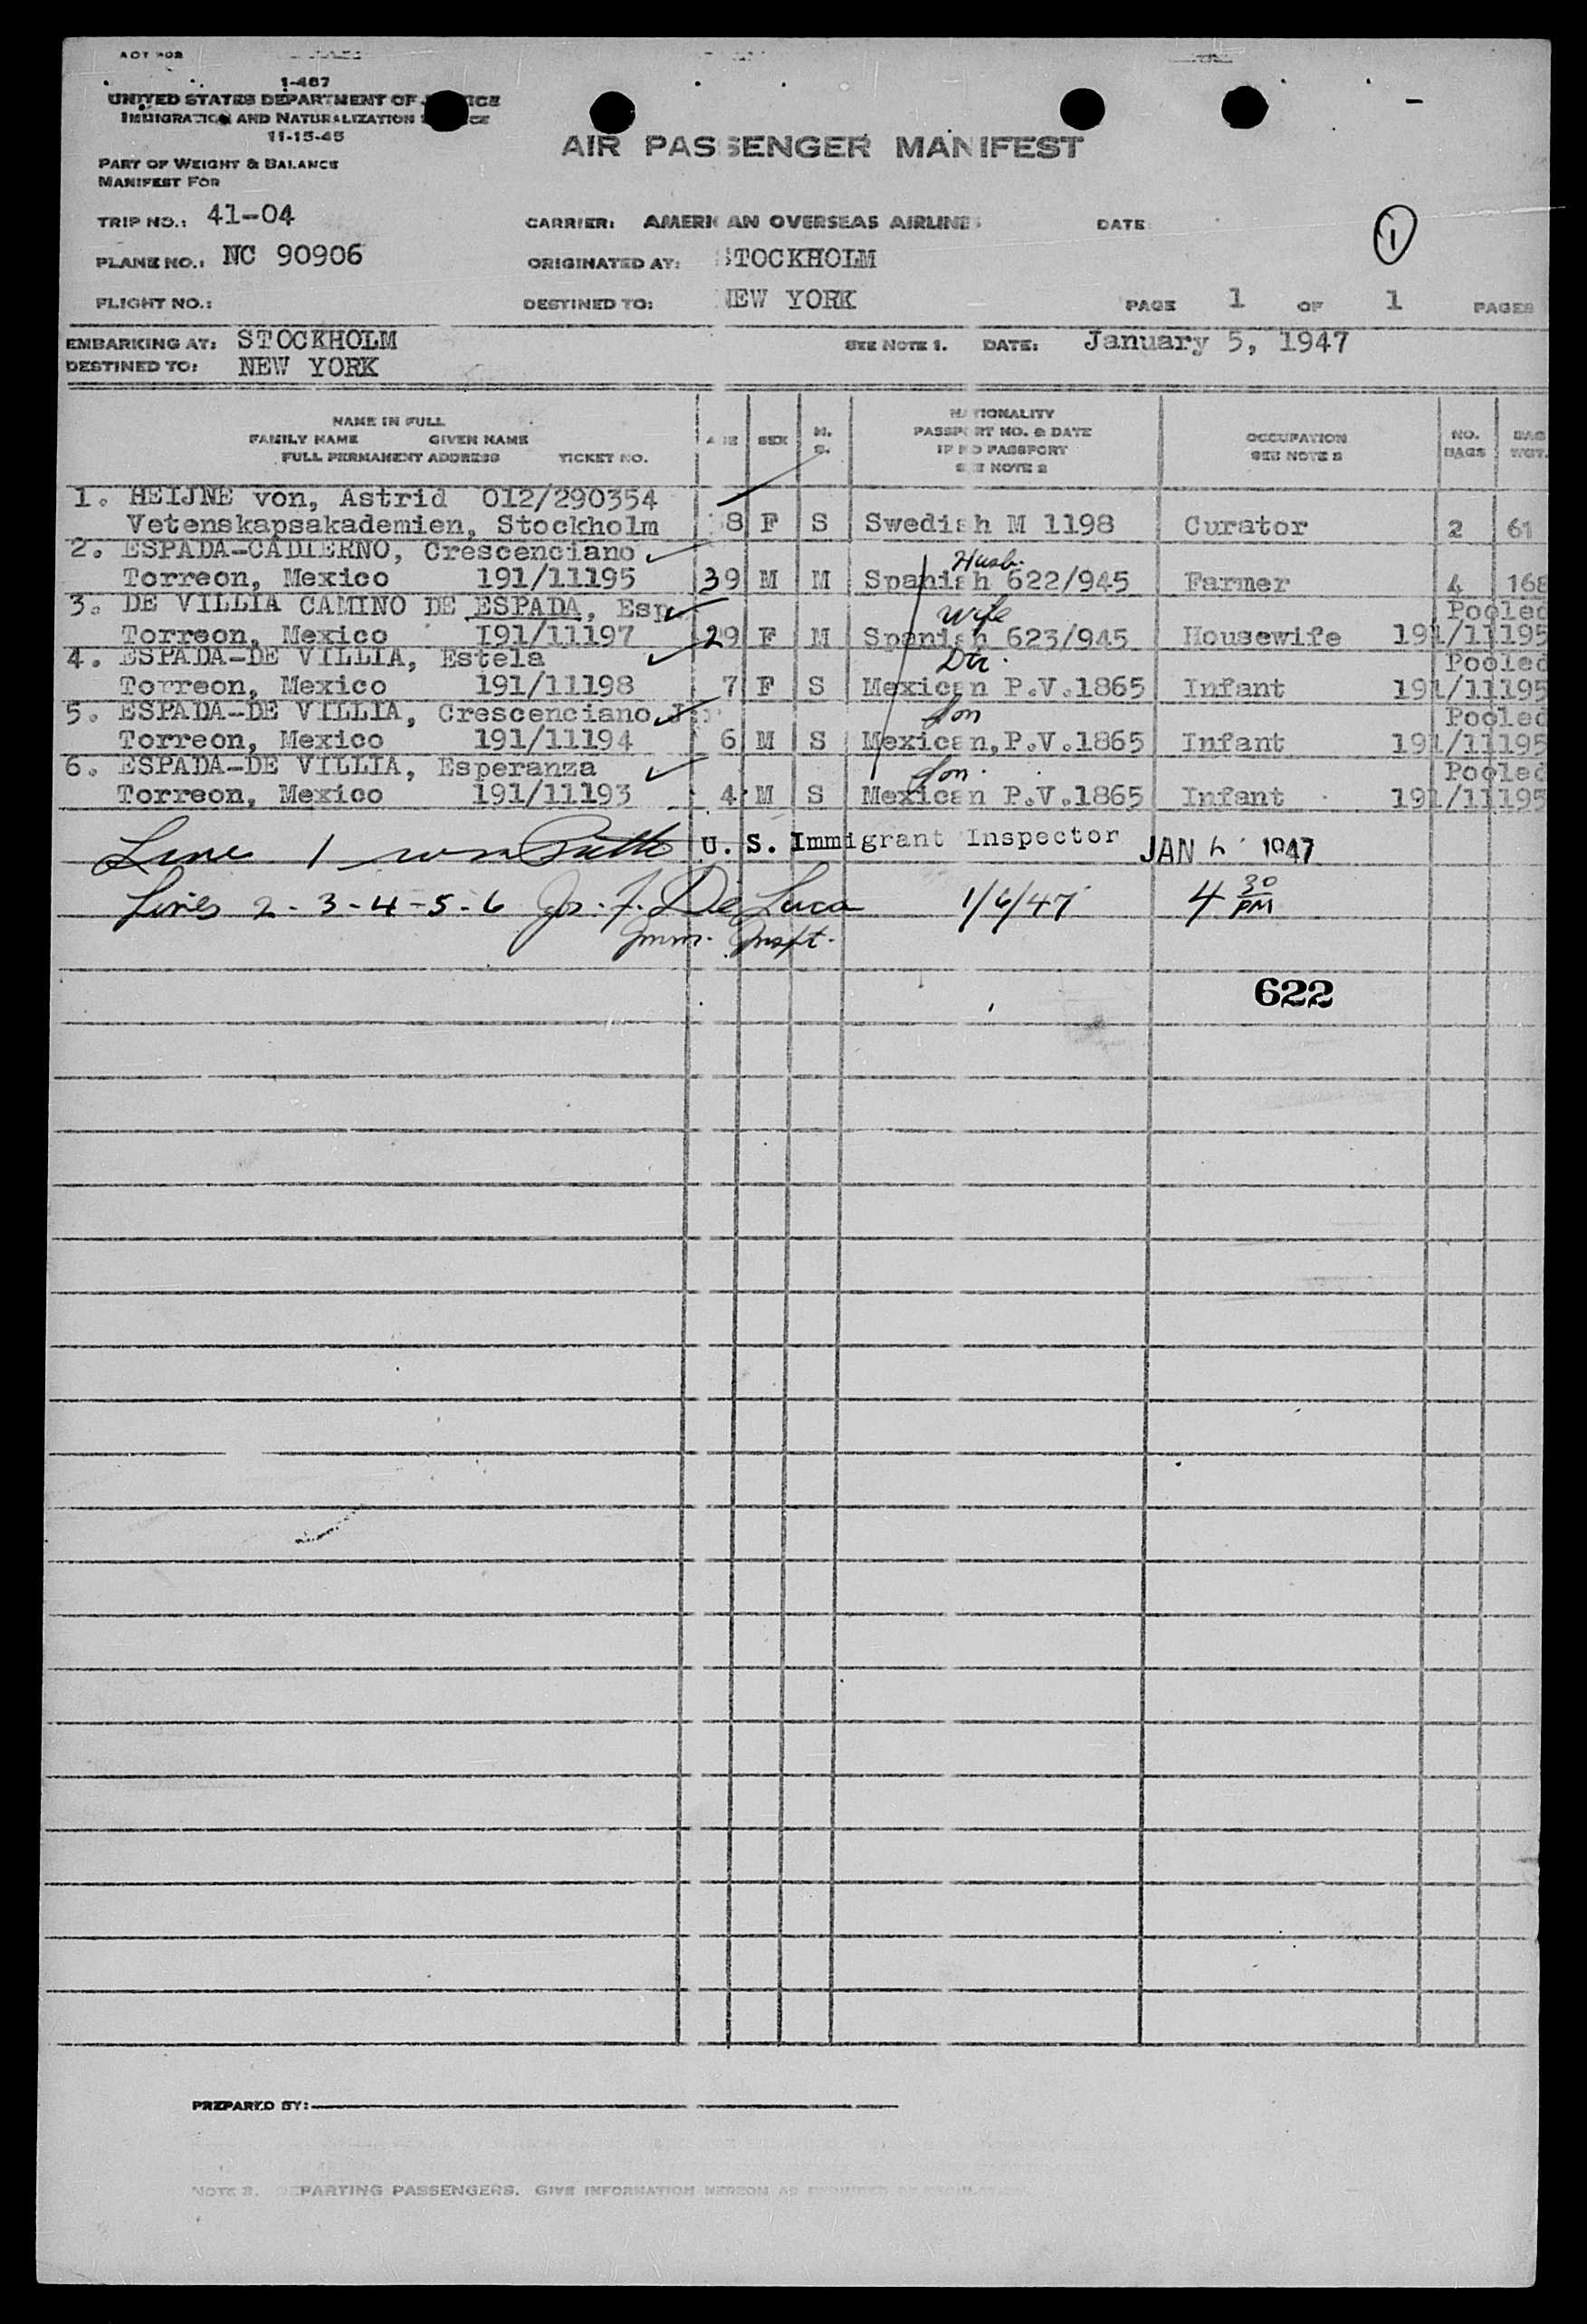 1-487
UNITED STATES DEPARTMENT OF
IMMIGRATION AND NATURALIZATION
11-15-45
AIR PASSENGER MANIFEST
PART OF WEIGHT & BALANCE
MANIFEST FOR
TRIP NO.: 41-04 CARRIER: AMERICAN OVERSEAS AIRLINES DATE 1
PLANE NO.: NC 90906 ORIGINATED AT: STOCKHOLM
FLIGHT NO.: DESTINED TO: NEW YORK PAGE 1 OF 1 PAGES
EMBARKING AT: STOCKHOLM SEE NOTE 1. DATE: January 5, 1947
DESTINED TO: NEW YORK
NAME IN FULL
FAMILY NAME GIVEN NAME
FULL PERMANENT ADDRESS TICKET NO.
AGE SEX M. S.
NATIONALITY
PASSPORT NO. & DATE
IF NO PASSPORT
SEE NOTE 2
OCCUPATION
SEE NOTE 2
NO. BAGS
BAG WGT.
1. HEIJNE von, Astrid 012/290354
Vetenskapsakademien, Stockholm 8 F S Swedish M 1198 Curator 2 61
2. ESPADA-CADIERNO, Crescenciano Husb.
Torreon, Mexico 191/11195 39 M M Spanish 622/945 Farmer 4 168
3. DE VILLIA CAMINO DE ESPADA, Esp Wife Pooled
Torreon, Mexico 191/11197 29 F M Spanish 623/945 Housewife 191/11195
4. ESPADA-DE VILLIA, Estela Dtr. Pooled
Torreon, Mexico 191/11198 7 F S Mexican P.V.1865 Infant 191/11195
5. ESPADA-DE VILLIA, Crescenciano Jr Son Pooled
Torreon, Mexico 191/11194 6 M S Mexican, P.V.1865 Infant 191/11195
6. ESPADA-DE VILLIA, Esperanza Son. Pooled
Torreon, Mexico 191/11193 4 M S Mexican P.V.1865 Infant 191/11195
Line 1 U. S. Immigrant Inspector JAN 6 1947
Lines 2-3-4-5-6 Jos. F. De Luca 1/6/47 4 30 PM
Imm. Inspt.
622
PREPARED BY:
NOTE 2. DEPARTING PASSENGERS. GIVE INFORMATION HEREON AS REQUIRED